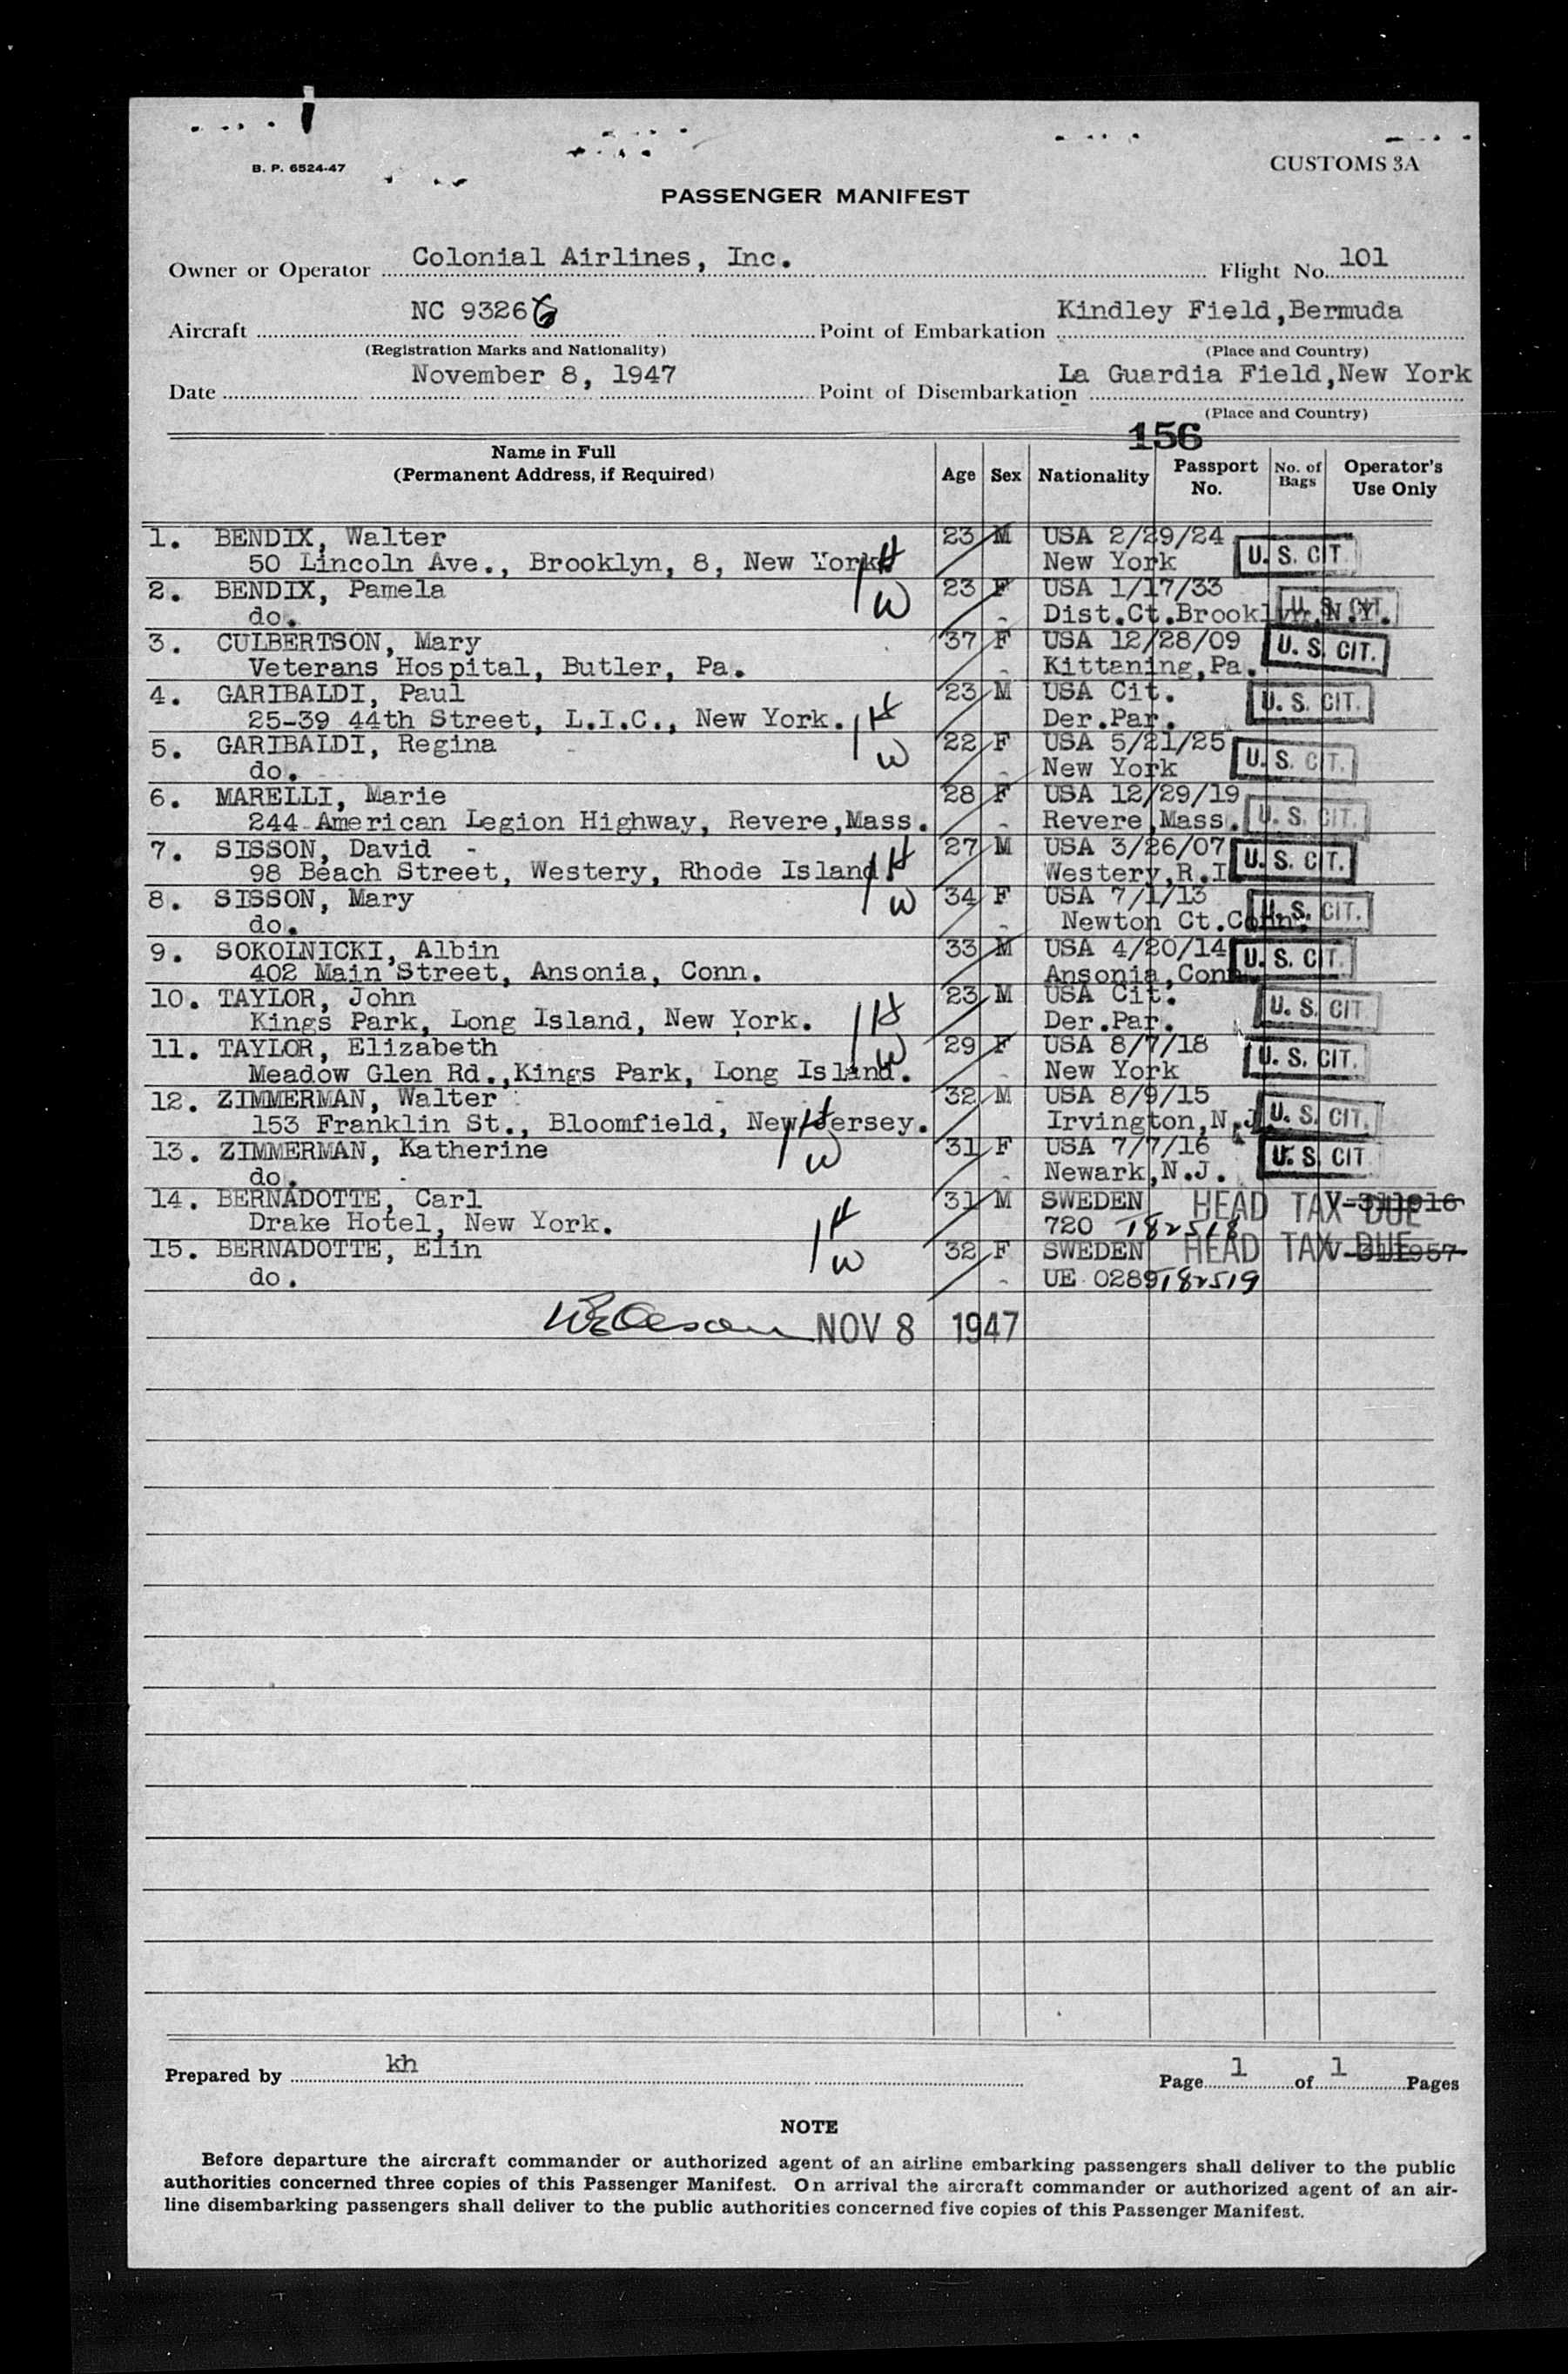 B. P. 6524-47
CUSTOMS 3A
PASSENGER MANIFEST
Owner or Operator Colonial Airlines, Inc. Flight No. 101
Aircraft NC 93266 Point of Embarkation Kindley Field,Bermuda
(Registration Marks and Nationality) (Place and Country)
Date November 8, 1947 Point of Disembarkation La Guardia Field,New York
(Place and Country)
156
Name in Full
(Permanent Address, if Required) Age Sex Nationality Passport No. No. of Bags Operator's Use Only
1. BENDIX, Walter 23 M USA 2/29/24
50 Lincoln Ave., Brooklyn, 8, New York. H New York U. S. CIT.
2. BENDIX, Pamela W 23 F USA 1/17/33
do. Dist.Ct.Brooklyn,N.Y. U. S. CIT.
3. CULBERTSON, Mary 37 F USA 12/28/09
Veterans Hospital, Butler, Pa. Kittaning,Pa. U. S. CIT.
4. GARIBALDI, Paul 23 M USA Cit.
25-39 44th Street, L.I.C., New York. H Der.Par. U. S. CIT.
5. GARIBALDI, Regina W 22 F USA 5/21/25
do. New York U. S. CIT.
6. MARELLI, Marie 28 F USA 12/29/19
244 American Legion Highway, Revere,Mass. Revere,Mass. U. S. CIT.
7. SISSON, David 27 M USA 3/26/07
98 Beach Street, Westery, Rhode Island. H Westery,R.I. U. S. CIT.
8. SISSON, Mary W 34 F USA 7/1/13
do. Newton Ct.Conn. U. S. CIT.
9. SOKOLNICKI, Albin 33 M USA 4/20/14
402 Main Street, Ansonia, Conn. Ansonia,Conn. U. S. CIT.
10. TAYLOR, John 23 M USA Cit.
Kings Park, Long Island, New York. H Der.Par. U. S. CIT.
11. TAYLOR, Elizabeth W 29 F USA 8/7/18
Meadow Glen Rd.,Kings Park, Long Island. New York U. S. CIT.
12. ZIMMERMAN, Walter 32 M USA 8/9/15
153 Franklin St., Bloomfield, New Jersey. H Irvington,N.J. U. S. CIT.
13. ZIMMERMAN, Katherine W 31 F USA 7/7/16
do. Newark,N.J. U. S. CIT.
14. BERNADOTTE, Carl 31 M SWEDEN HEAD TAX DUE V-311916
Drake Hotel, New York. H 720 T82518
15. BERNADOTTE, Elin W 32 F SWEDEN HEAD TAX DUE V-311957
do. UE 0289 T82519
NOV 8 1947
Prepared by kh Page 1 of 1 Pages
NOTE
Before departure the aircraft commander or authorized agent of an airline embarking passengers shall deliver to the public
authorities concerned three copies of this Passenger Manifest. On arrival the aircraft commander or authorized agent of an air-
line disembarking passengers shall deliver to the public authorities concerned five copies of this Passenger Manifest.